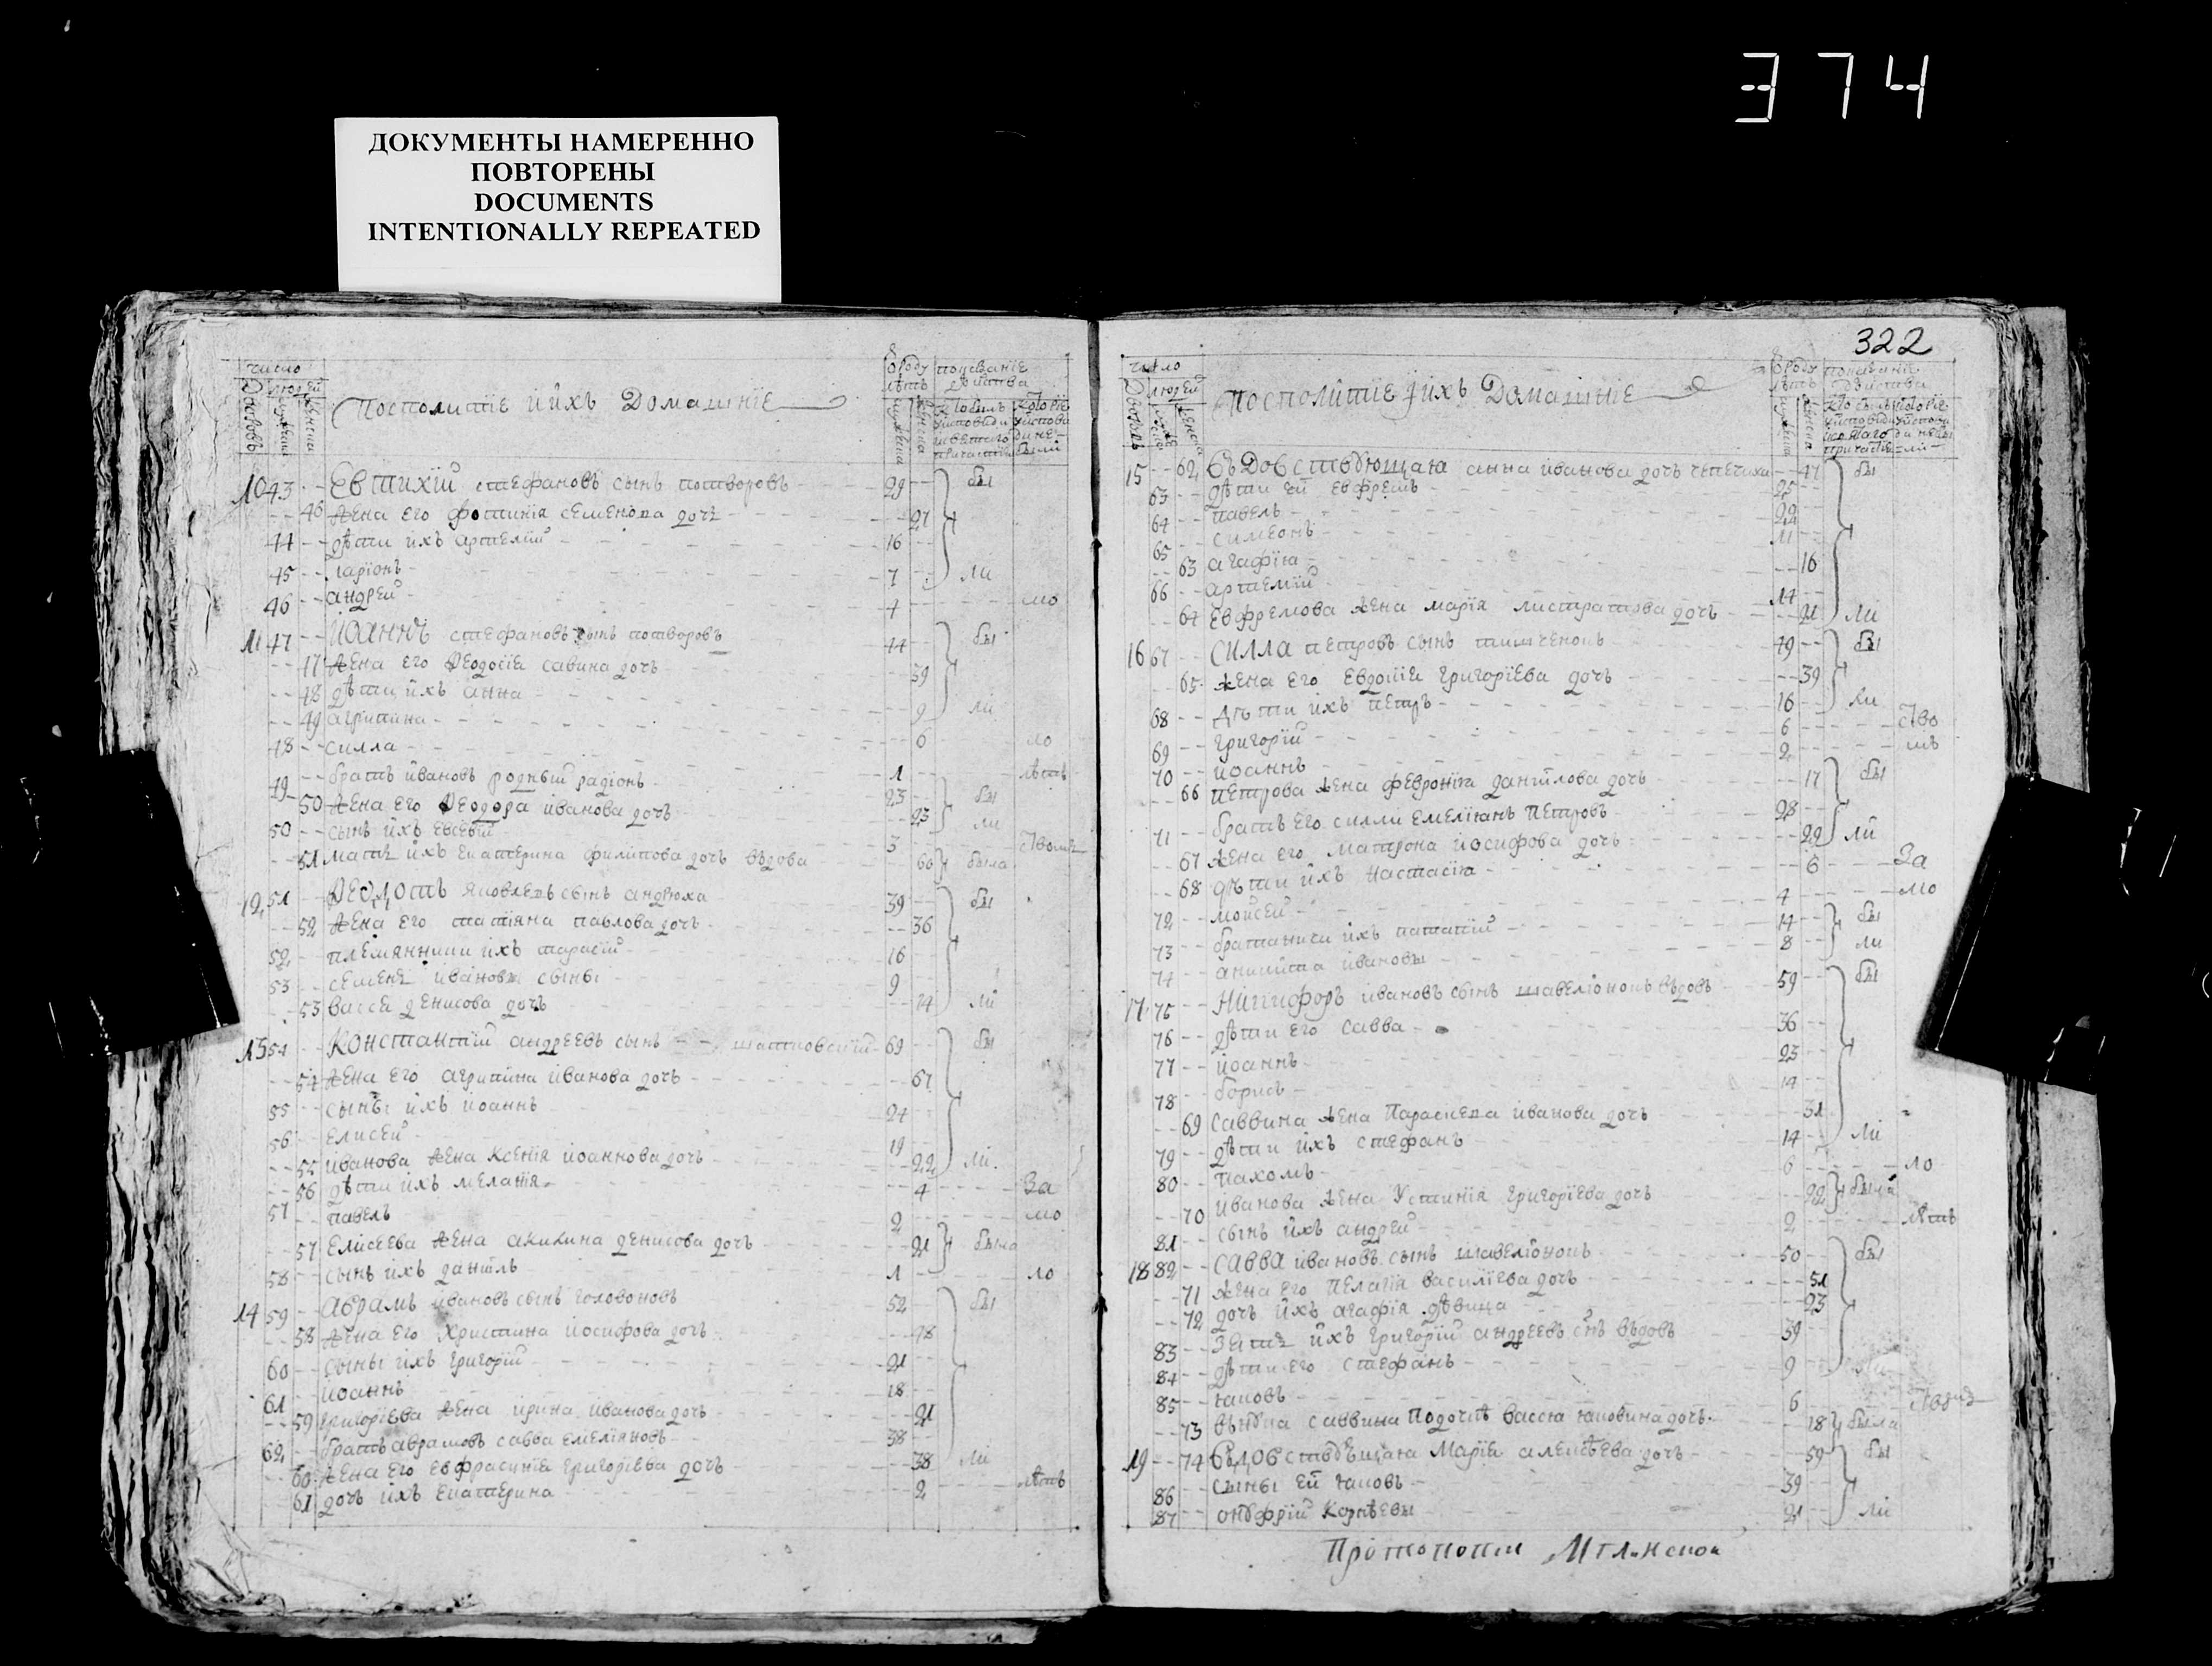 374
ДОКУМЕНТЫ НАМЕРЕННО
ПОВТОРЕНЫ
DOCUMENTS
INTENTIONALLY REPEATED
число
Посполитіе й ихъ Домашніе
10 43 Евтихій стефановъ сынъ потворовъ 29 бы
46 жена его фотинія семенова дочь 27
44 дѣти ихъ артемій 16
45 ларіонъ 7 ли
46 андрей 4 мо
11 47 Иоаннъ стефановъ сынъ потворовъ 44 бы
47 жена его Ѳеодосія савина дочь 39
48 дѣти ихъ анна 9 ли
49 агрипина 6 ло
48 силла 1 лѣтъ
49 братъ ивановъ родный радіонъ 23 бы
50 жена его Ѳеодора иванова дочь 23 ли
50 сынъ ихъ евсевій 3
51 мать ихъ екатерина филипова дочь вдова 60 была
12 51 Ѳедотъ яковлевъ сынъ андрюха 39 бы
52 жена его татіяна павлова дочь 36
52 племянники ихъ тарасій 16
53 семенъ ивановы сыны 9
53 васса денисова дочь 14 ли
13 54 Константій андреевъ сынъ шатковскій 69 бы
54 жена его агрипина иванова дочь 67
55 сыны ихъ иоаннъ 24
56 елисей 19
55 иванова жена ксенія иоаннова дочь 22 ли
56 дѣти ихъ меланія 4 За
57 павелъ 2 мо
57 Елисеева жена акилина денисова дочь 21 была
58 сынъ ихъ даніилъ 1 ло
14 59 Аврамъ ивановъ сынъ головоновъ 52 бы
58 жена его христина иосифова дочь 48
60 сыны ихъ григорій 21
61 иоаннъ 18
59 григоріева жена ирина иванова дочь 21
62 братъ аврамовъ савва емеліяновъ 38
60 жена его евфрасинія григоріева дочь 38 ли
61 дочь ихъ екатерина 2 лѣтъ
322
число
Посполитіе й ихъ Домашніе
15 62 Вдовствующая анна иванова дочь чепечиха 47 бы
63 дѣти ей евфремъ 25
64 павелъ 22
65 симеонъ
63 агафія 16
66 артемій 14
64 евфремова жена марія листратова дочь 21 ли
16 67 Силла петровъ сынъ тимченокъ 49 бы
65 жена его евдокія григоріева дочь 39
68 дѣти ихъ петръ 16 ли
69 григорій 6
70 иоаннъ 2 мъ
66 петрова жена февронія даніилова дочь 17 бы
71 братъ его силли емеліанъ петровъ 28
67 жена его матрона иосифова дочь 22 ли
68 дѣти ихъ настасія 6 За
72 мойсей 4 мо
73 братаничи ихъ патапій 14 бы
74 аникита ивановы 8 ли
17 75 Никифоръ ивановъ сынъ шавеліонокъ вдовъ 59 бы
76 дѣти его савва 36
77 иоаннъ 23
78 борисъ 14
69 саввина жена параскева иванова дочь 31
79 дѣти ихъ стефанъ 14 ли
80 пахомъ 6 ло
70 иванова жена устинія григоріева дочь 22 была
81 сынъ ихъ андрей 2 лѣтъ
18 82 Савва ивановъ сынъ шавеліонокъ 50 бы
71 жена его пелагія василіева дочь 51
72 дочь ихъ агафія дѣвица 23
83 зять ихъ григорій андреевъ снъ вдовъ 39
84 дѣти его стефанъ 9 ли
85 яковъ 6
73 внука саввина подочкѣ васса яковина дочь 18 была
19 74 Вдовствующая марія алексѣева дочь 59 бы
86 сыны ей яковъ 39
87 онуфрій корнѣевы 21 ли
Протопопіи Мглинской